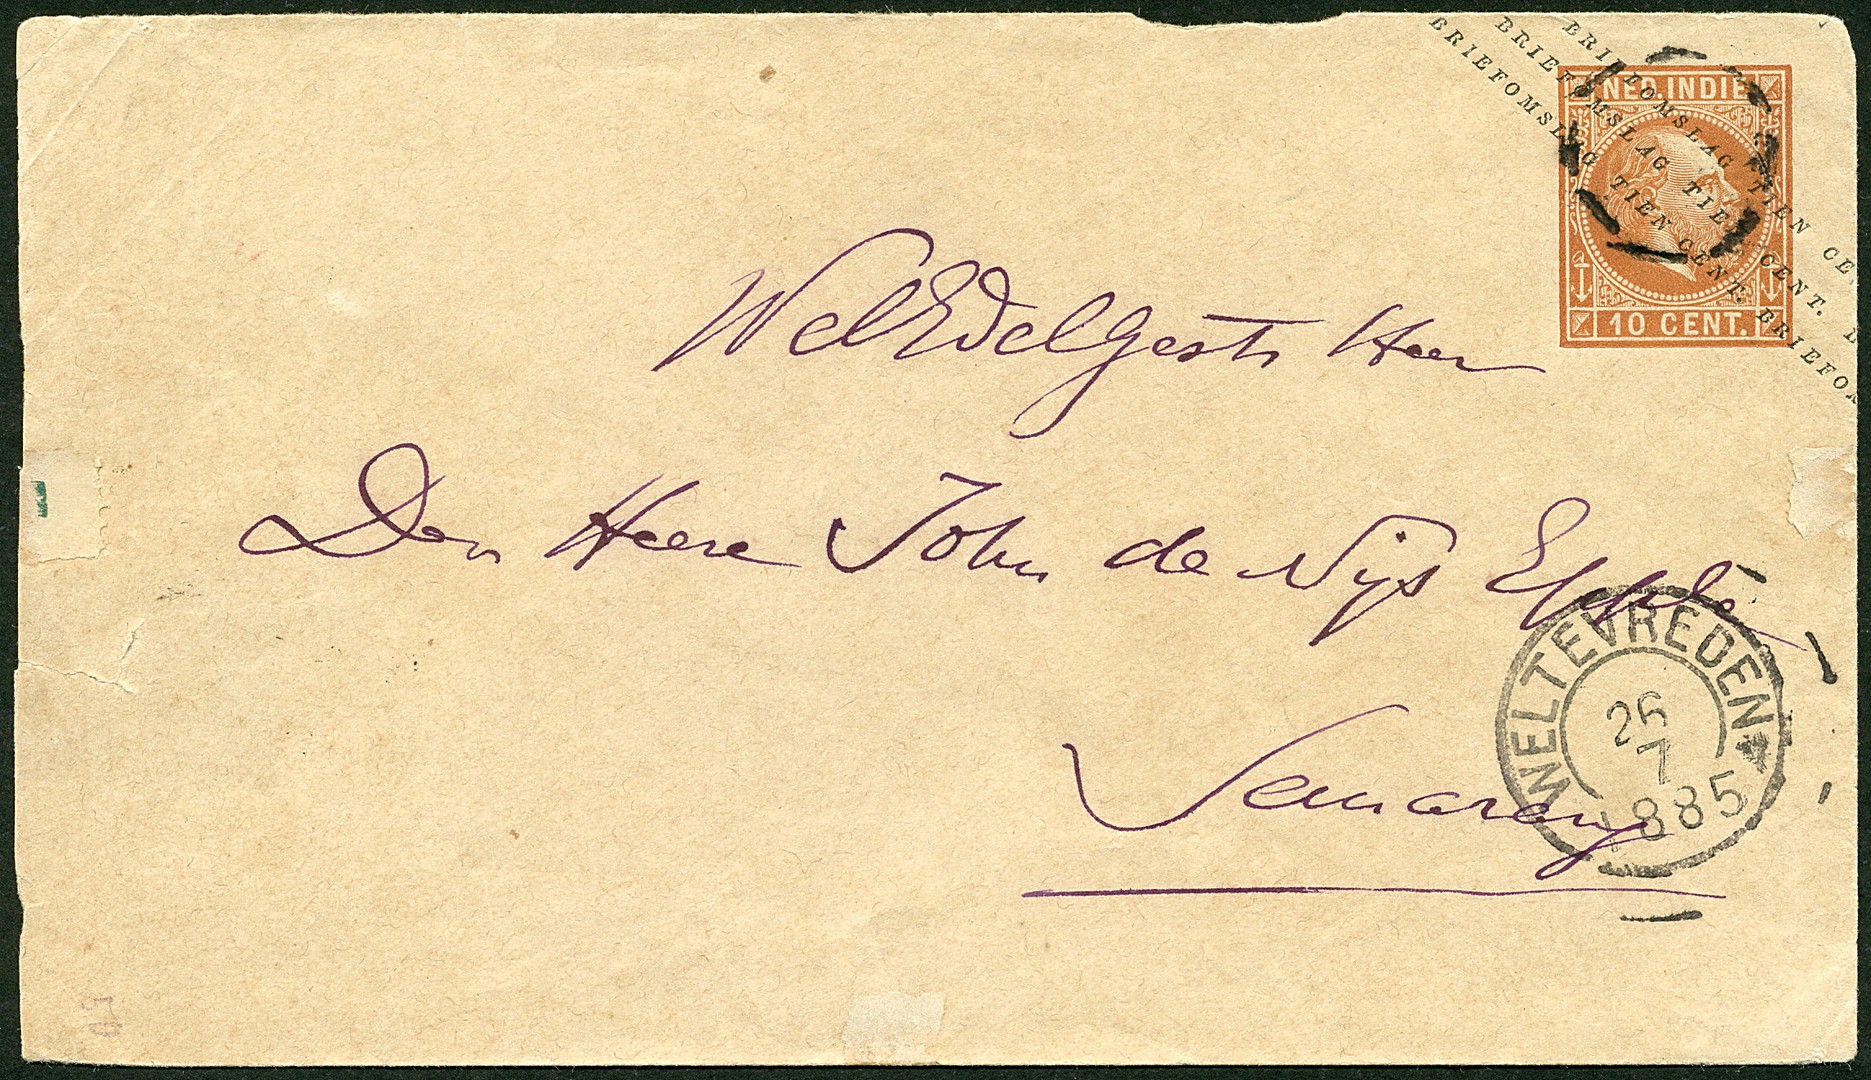 BRIEFOMSLAG TIEN CE
BRIEFOMSLAG TIEN CENT. B
BRIEFOMSLAG TIEN CENT. BRIEFOM
NED. INDIE
10 CENT.
WelEdelGestr Heer
Den Heere John de Nijs
Semarang
WELTEVREDEN
26
7
1885